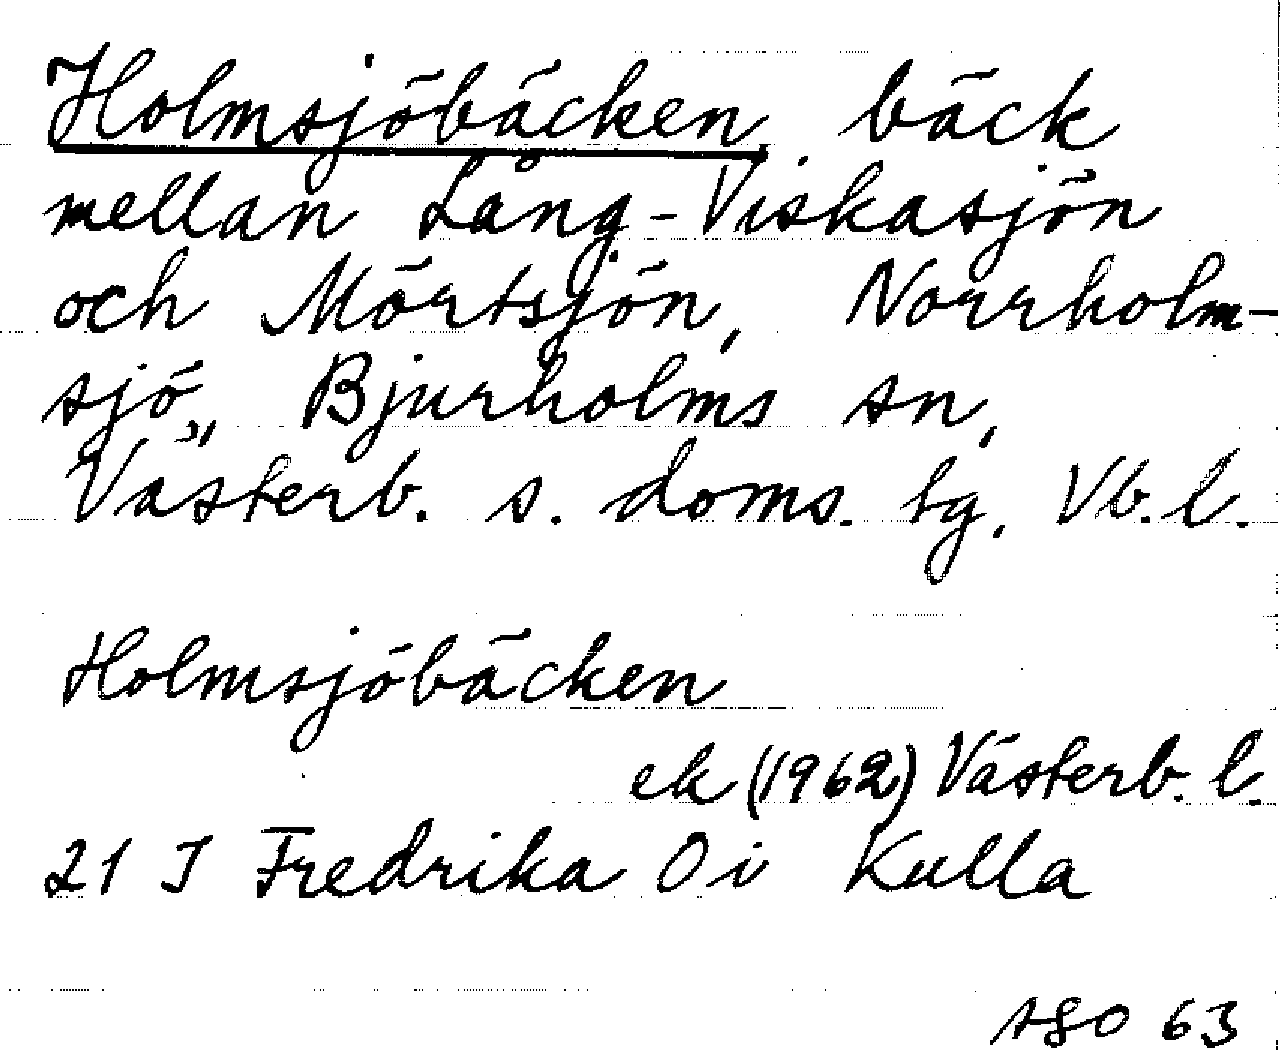 Holmsjöbäcken, bäck
mellan Lång-Viskasjön
och Mörtsjön, Norrholm-
sjö,, Bjurholms sn,
Västerb. s. doms. tg. Vb. l.
Holmsjöbäcken
ek (1962) Västerb. l.
21 J Fredrika 0 i Kulla
ASO 63